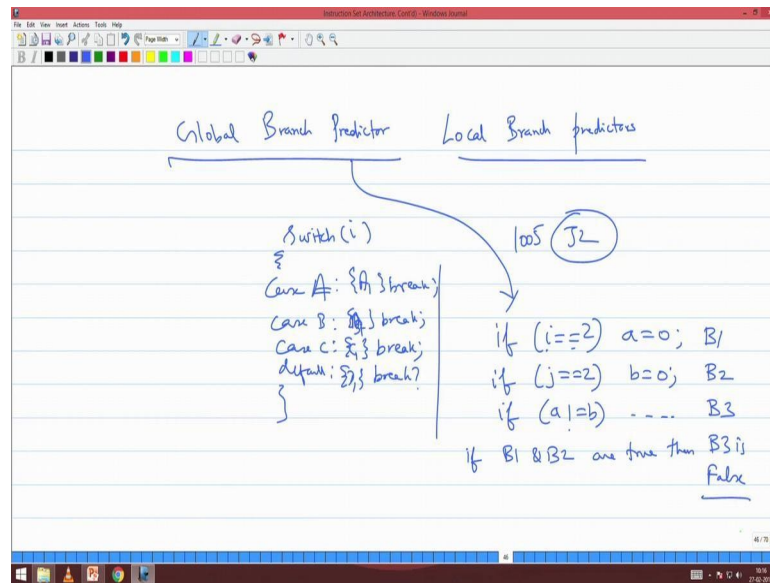 Instruction Set Architecture, Cont(d) - Windows Journal
File Edit View Insert Actions Tools Help
Page Width
B I
Global Branch Predictor Local Branch predictors
Switch (i)
{
Case A: {A } break;
Case B: { } break;
Case C: { } break;
default: { } break?
}
1005 J2
if (i==2) a=0; B1
if (j==2) b=0; B2
if (a!=b) ---- B3
if B1 & B2 are true then B3 is
False
46
46/70
10:16